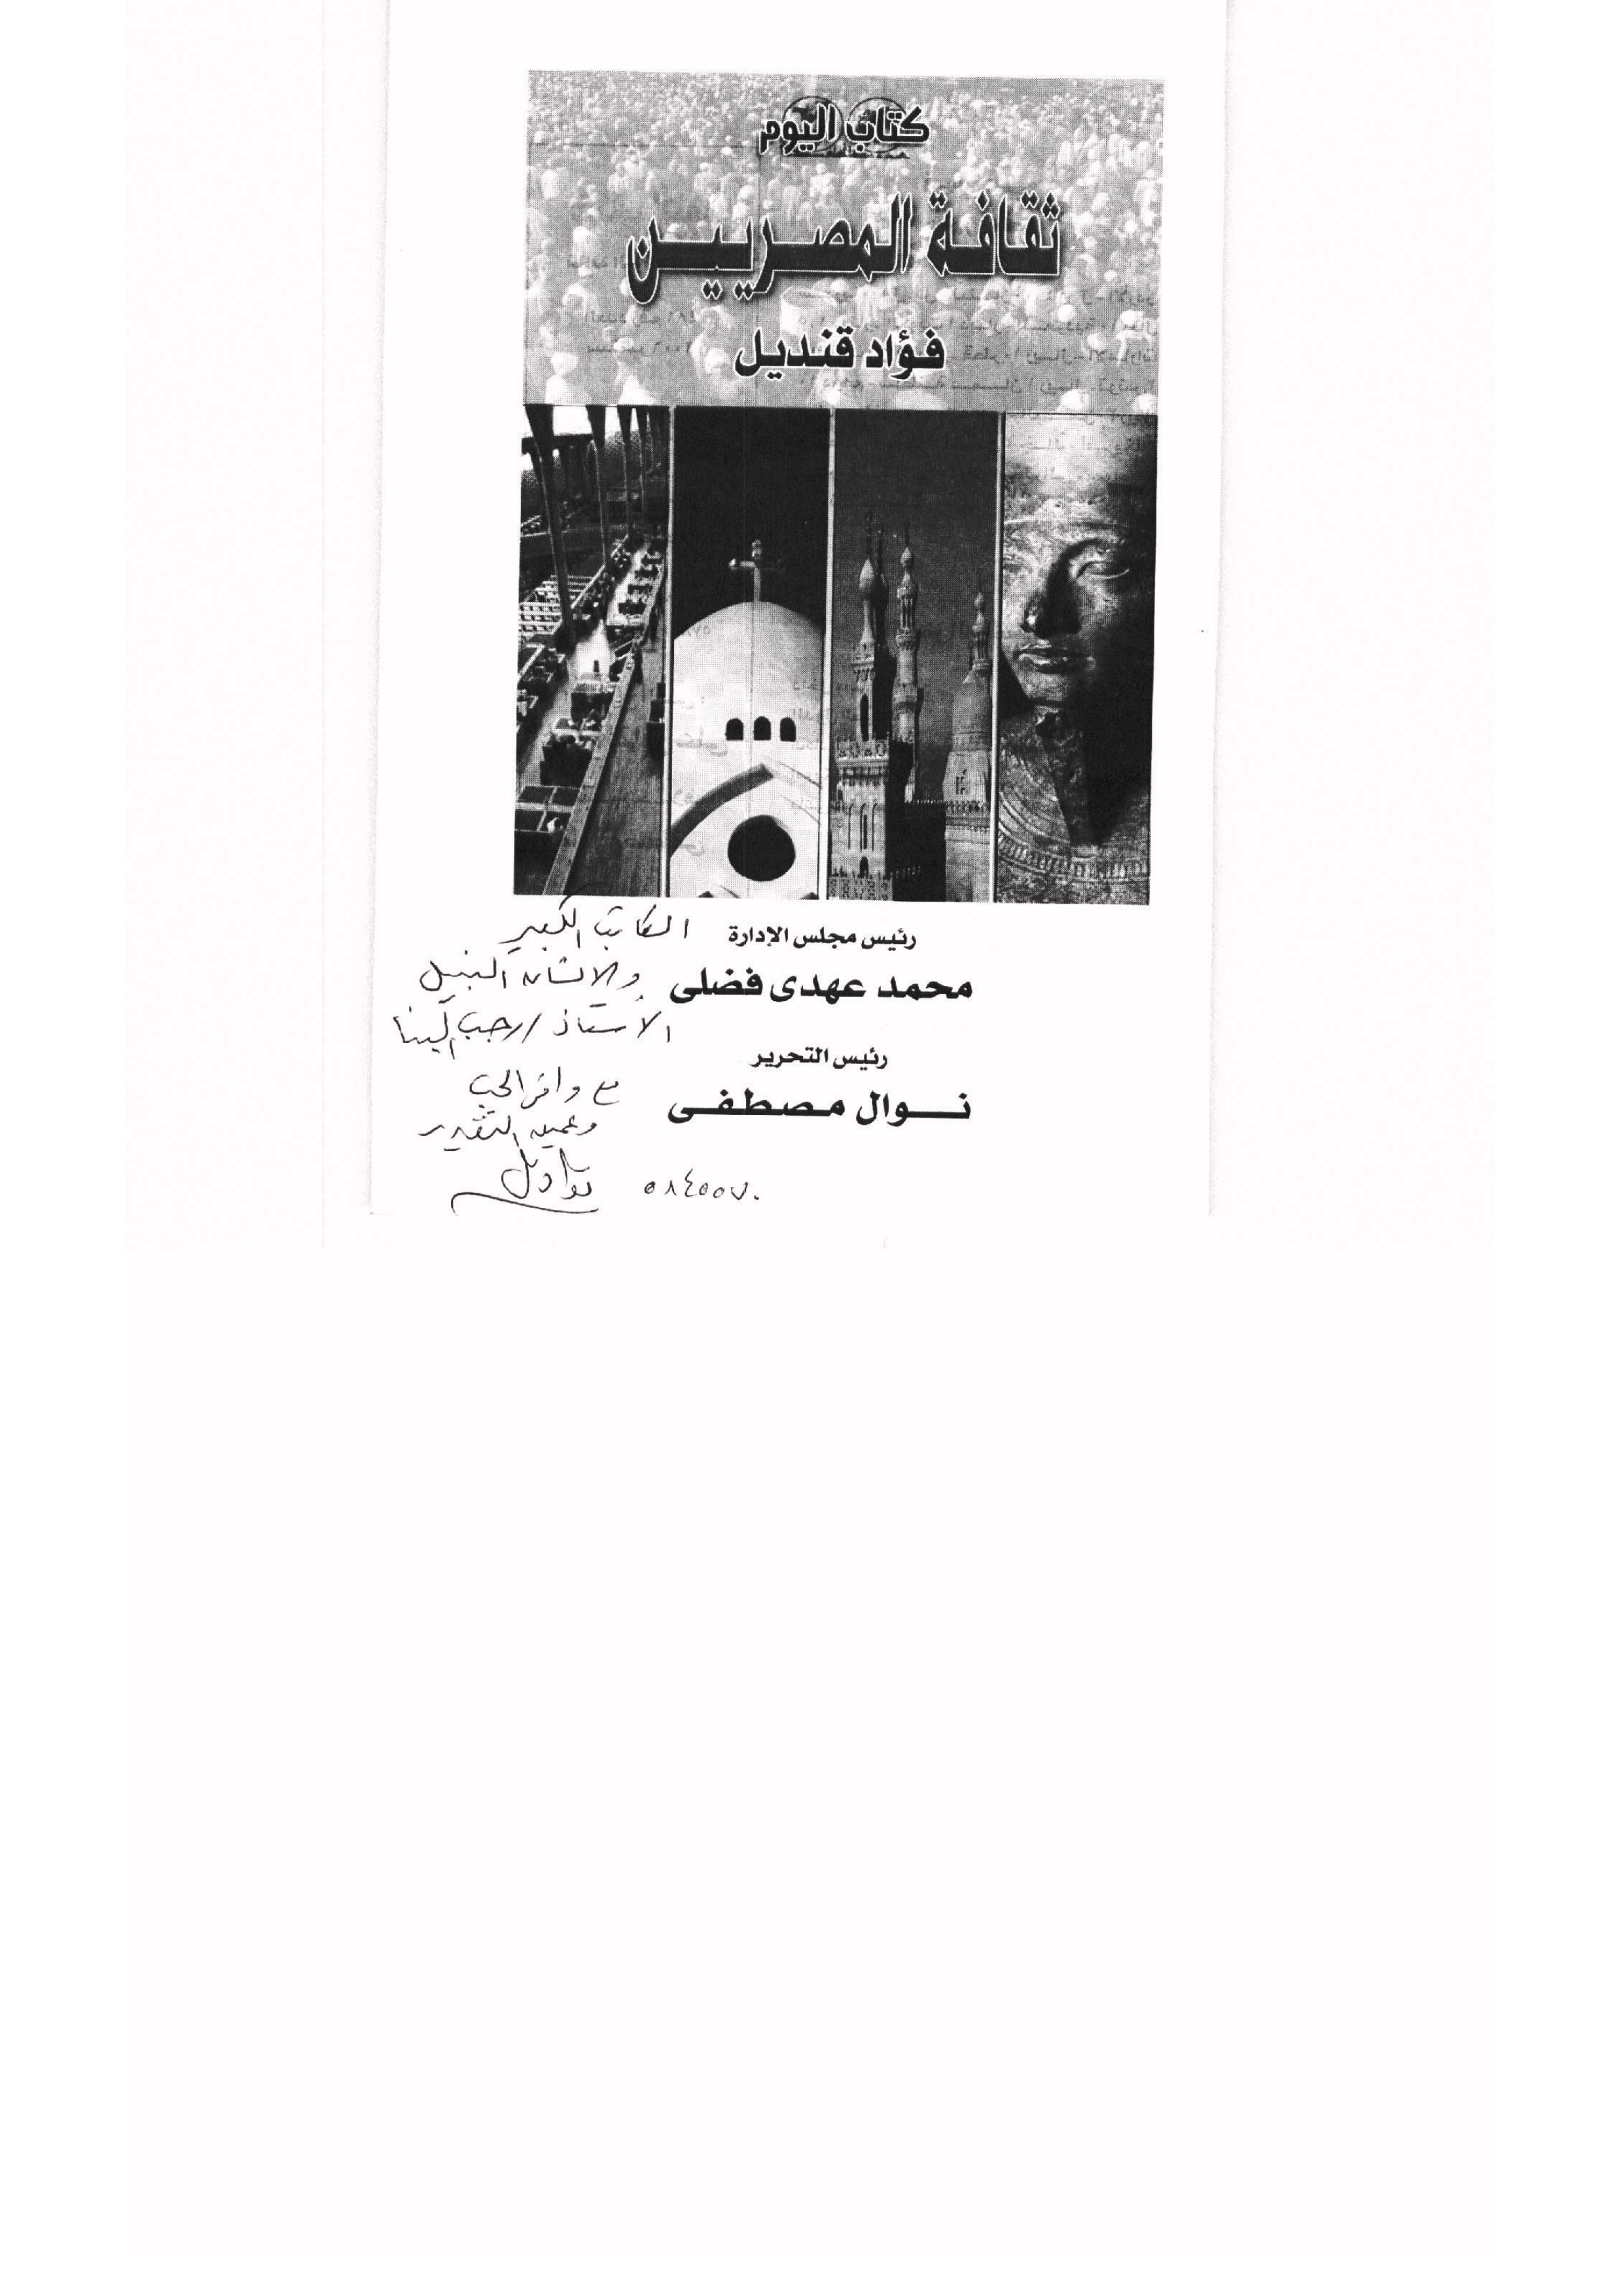 كتاب اليوم
ثقافة المصريين
فؤاد قنديل
رئيس مجلس الإدارة
محمد عهدى فضلى
رئيس التحرير
نوال مصطفى
الكاتب الكبير
والانسان النبيل
الاستاذ / رجب البنا
مع وافر الحب
وعميق التقدير
٥٨٤٥٥٧٠